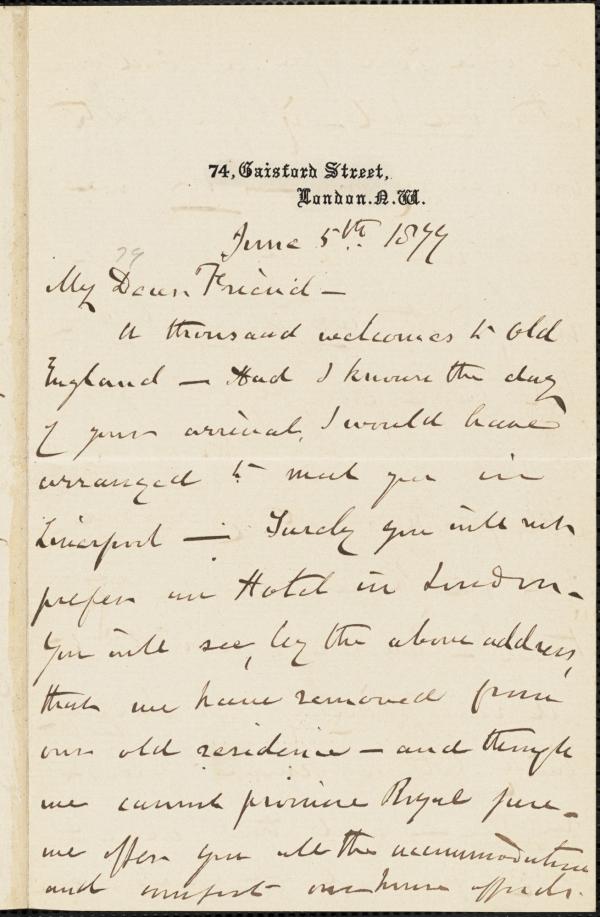 74, Gaisford Street,
London. N.W.
June 5th 1877
79
My Dear Friend —
A thousand welcomes to Old
England — Had I known the day
of your arrival, I would have
arranged to meet you in
Liverpool — Surely you will not
prefer an Hotel in London —
You will see, by the above address,
that we have removed from
our old residence — and though
we cannot promise Royal fare —
we offer you all the accommodation
and comfort our house affords.